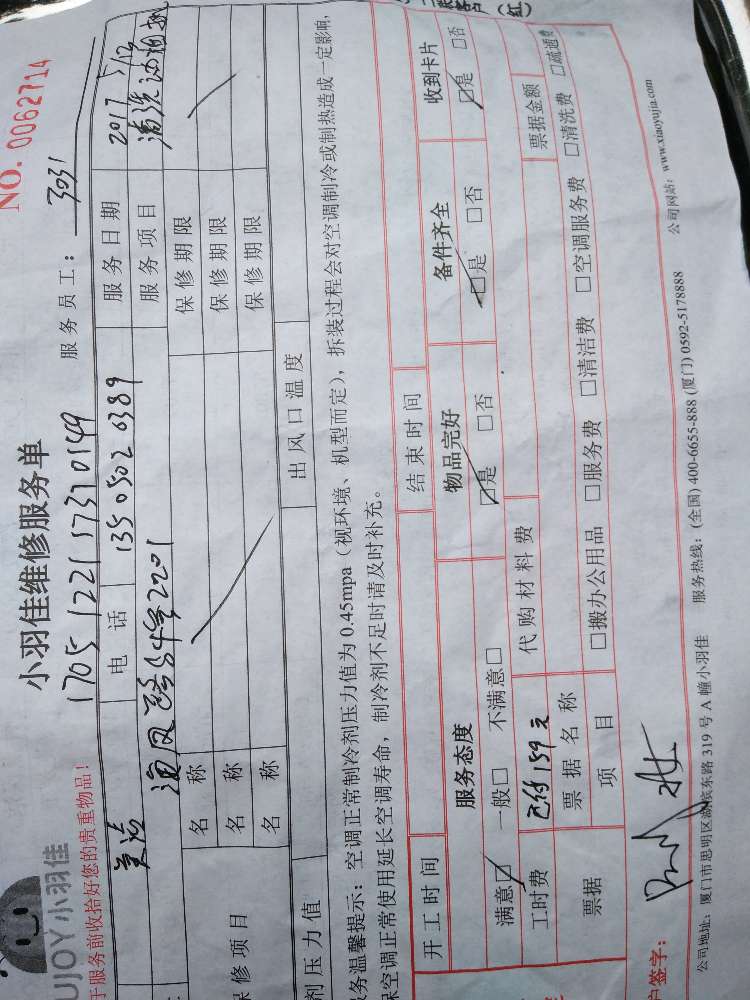 (红)
NO. 0062714
UJOY小羽佳
小羽佳维修服务单
170512211737 0149
服务员工: 3031
于服务前收拾好您的贵重物品!
电话 135 0502 0389 服务日期 2017 5/12
54号2201 服务项目 清洗油烟机
修项目 名称 保修期限
名称 保修期限
名称 保修期限
剂压力值 出风口温度
务温馨提示: 空调正常制冷剂压力值为 0.45mpa (视环境、机型而定), 拆装过程会对空调制冷或制热造成一定影响,
空调正常使用延长空调寿命, 制冷剂不足时请及时补充。
开工时间 结束时间
服务态度 物品完好 备件齐全 收到卡片
满意☑ 一般□ 不满意□ ☑是 □否 ☑是 □否 ☑是 □否
工时费 已付159元 代购材料费
票据 票据名称 票据金额
项目 □搬办公用品 □服务费 □清洁费 □空调服务费 □清洗费 □疏通费
户签字:
公司地址: 厦门市思明区湖滨东路 319 号 A 幢小羽佳 服务热线: (全国) 400-6655-888 (厦门) 0592-5178888 公司网站: www.xiaoyujia.com